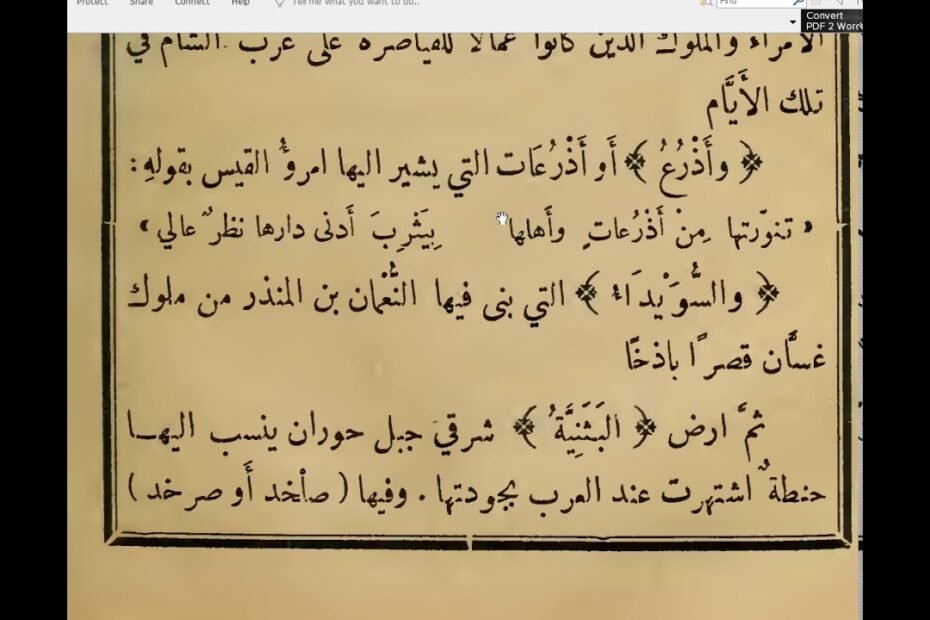 Protect Share Connect Help Tell me what you want to do.. Find
Convert
PDF 2 Word
الامراء والملوك الذين كانوا عمالاً للقياصرة على عرب الشام في
تلك الأيَّام
﴿ وأَذْرُعُ ﴾ أَو أَذْرُعَات التي يشير اليها امرؤُ القيس بقولهِ :
« تنوّرتها مِنْ أَذْرُعاتٍ وأَهلها بِيَثْرِبَ أَدنى دارها نظرٌ عالي »
﴿ والسُّوَيْدَاءُ ﴾ التي بنى فيها النُّعْمان بن المنذر من ملوك
غسَّان قصرًا باذخًا
ثمَّ ارض ﴿ البَثَنِيَّةُ ﴾ شرقيَ جبل حوران ينسب اليهـا
حنطةٌ اشتهرت عند العرب بجودتها . وفيها ( صلخد أَو صرخد )